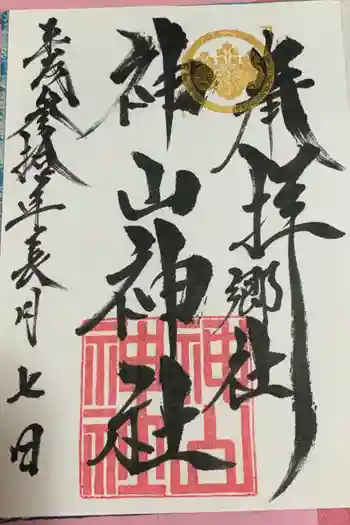 奉拝
郷社
神山神社
神山神社
平成参拾年長月七日